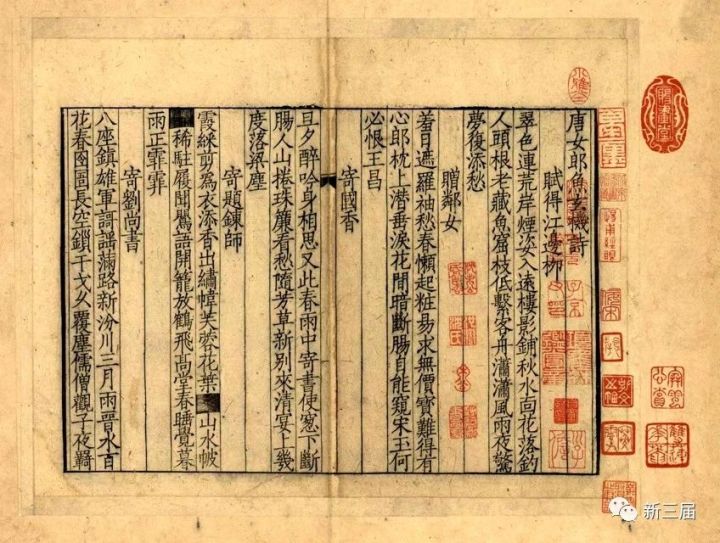 唐女郎魚玄機詩
賦得江邊柳
翠色連荒岸煙姿入遠樓影鋪秋水面花落釣
人頭根老藏魚窟枝低繫客舟瀟瀟風雨夜驚
夢復添愁
贈鄰女
羞日遮羅袖愁春懶起粧易求無價寶難得有
心郎枕上潛垂淚花間暗斷腸自能窺宋玉何
必恨王昌
寄國香
旦夕醉吟身相思又此春雨中寄書使窻下斷
腸人山捲珠簾看愁隨芳草新別來清宴上幾
度落梁塵
寄題鍊師
霞綵剪為衣添香出繡幃芙蓉花葉 山水帔
稀駐履聞鸎語開籠放鶴飛高堂春睡覺暮
雨正霏霏
寄劉尚書
八座鎮雄軍謌謠滿路新汾川三月雨晉水百
花春囹圄長空鎖干戈久覆塵儒僧觀子夜羇
新三届